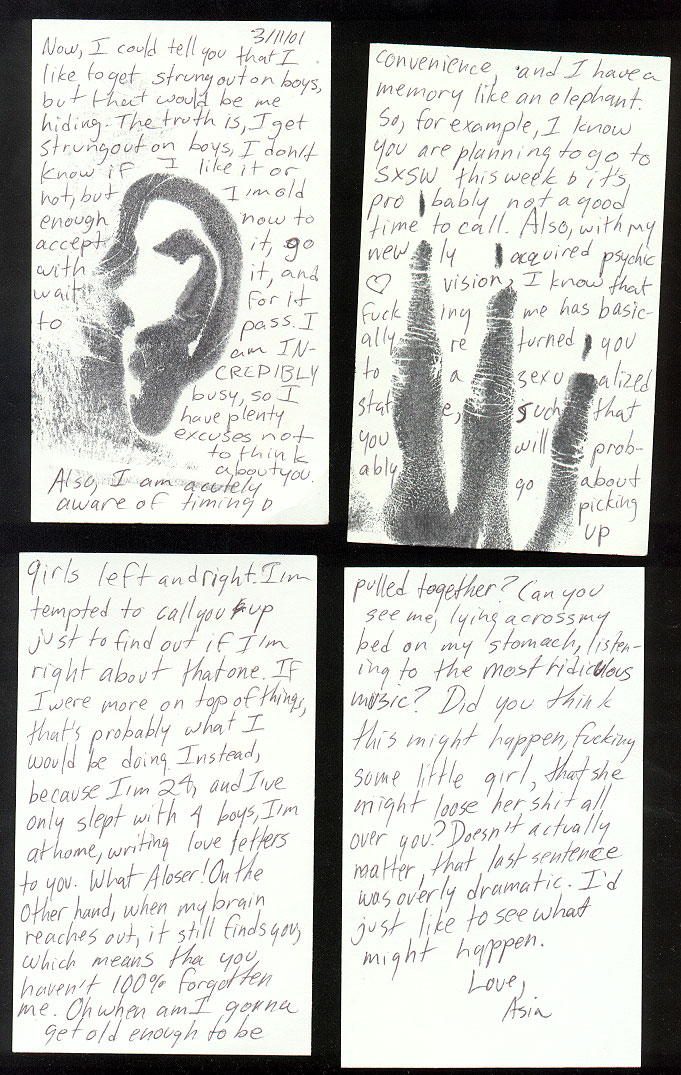 3/11/01
Now, I could tell you that I
like to get strung out on boys,
but that would be me
hiding. The truth is, I get
strung out on boys, I don't
know if I like it or
not, but I'm old
enough now to
accept it, go
with it, and
wait for it
to pass. I
am IN-
CREDIBLY
busy, so I
have plenty
excuses not
to think
about you.
Also, I am acutely
aware of timing &
convenience, and I have a
memory like an elephant.
So, for example, I know
you are planning to go to
SXSW this week & it's
probably not a good
time to call. Also, with my
newly acquired psychic
♡ vision, I know that
fucking me has basic-
ally returned you
to a sexualized
state, such that
you will prob-
ably go about
picking
up
girls left and right. I'm
tempted to call you up
just to find out if I'm
right about that one. If
I were more on top of things,
that's probably what I
would be doing. Instead,
because I'm 24, and I've
only slept with 4 boys, I'm
at home, writing love letters
to you. What A loser! On the
Other hand, when my brain
reaches out, it still finds you,
which means tha you
haven't 100% forgotten
me. Oh when am I gonna
get old enough to be
pulled together? Can you
see me, lying across my
bed on my stomach, listen-
ing to the most ridiculous
music? Did you think
this might happen, fucking
some little girl, that she
might loose her shit all
over you? Doesn't actually
matter, that last sentence
was overly dramatic. I'd
just like to see what
might happen.
Love,
Asia